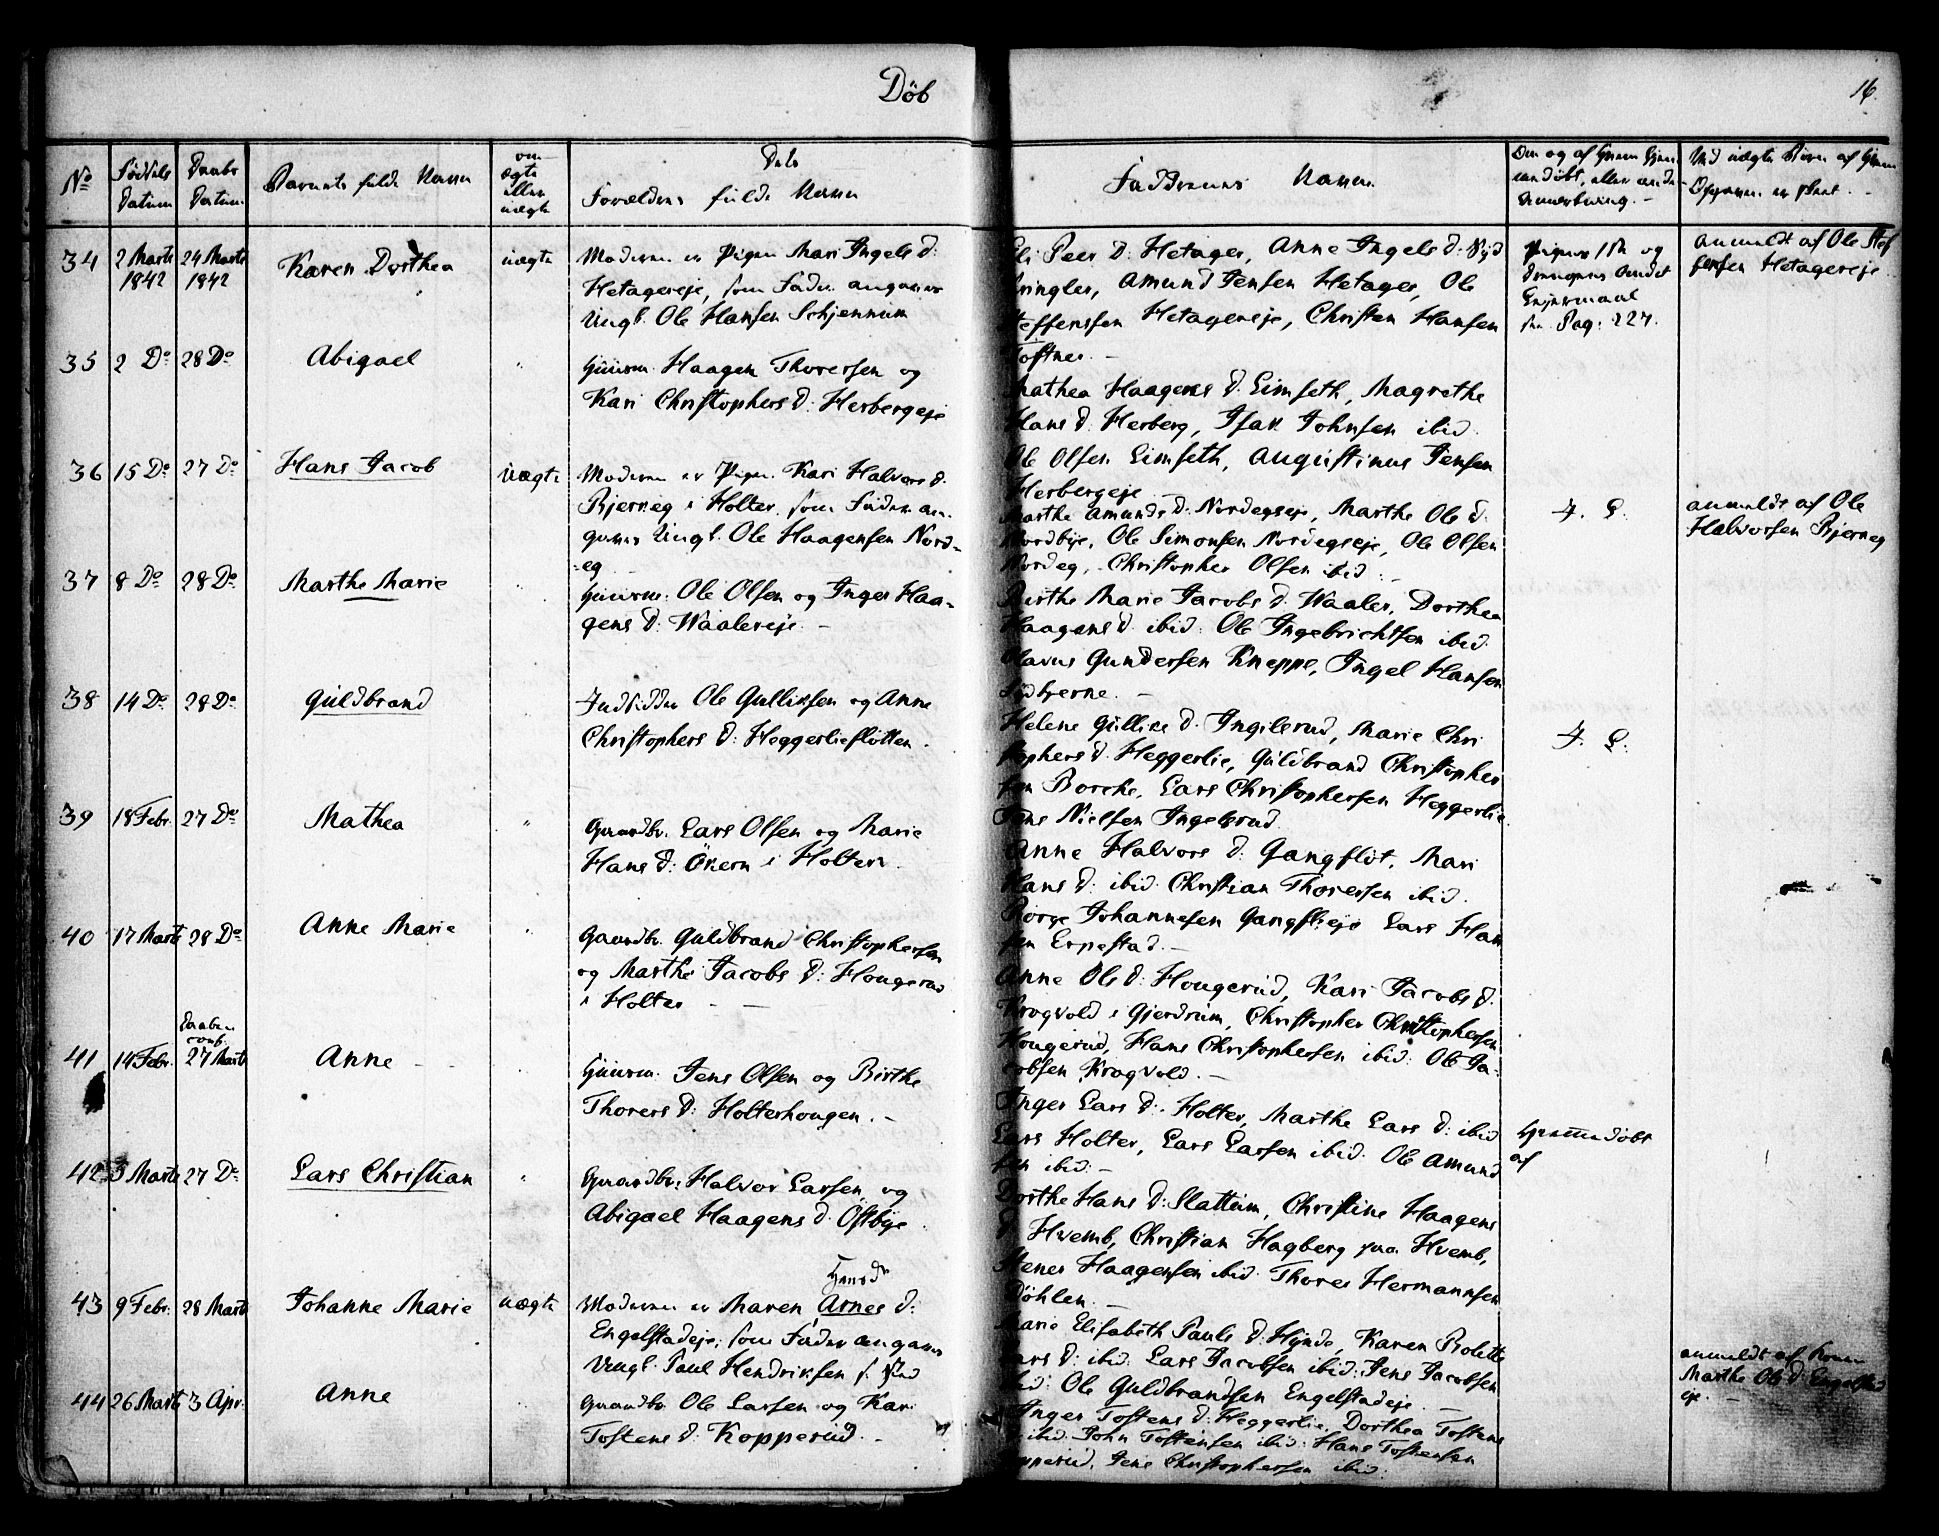 Döb
16.
No
Fødsels Datum
Daabs Datum
Barnets fulde Navn
om ægte eller uægte
Dets Forældres fulde Navn
Faddernes Navn
34 2 Marts 1842 24 Marts 1842 Karen Dorthea uægte
Moderen er Pigen Mari Ingels d:
Hetagereje, som Fader angaves
Ungk. Ole Hansen Schjennum
Peer D: Hetager, Anne Ingels d:
Amund Jensen Hetager, Ole
Steffensen Hetagereje, Christen Hansen
Toftner.
Pigens 1ste og
Drengens Andet
Leiermaal
Pag: 227.
anmeldt af Ole Stef
fensen Hetagereje
35 2 Do 28 Do Abigael "
Huusm. Haagen Thoresen og
Kari Christophers D: Herbergeje
Mathea Haagens d. Limseth, Magrethe
Hans d: Herberg, Isak Johnsen ibid.
Ole Olsen Limseth, Augustinus Jensen
Herbergeje
36 15 Do 27 Do Hans Jacob uægte
Moderen er Pigen Kari Halvors d.
Bjerneg i Holter, som Fader an-
gives Ungk. Ole Haagensen Nord-
-eg
Marthe Amunds d: Nordegseje, Marthe Ole d:
Nordbye, Ole Simonsen Nordegseje, Ole Olsen
Nordeg, Christopher Olsen ibid: -
anmeldt af Ole
Halvorsen Bjerneg
37 8 Do 28 Do Marthe Marie "
Huusm: Ole Olsen og Inger Haa-
gens D: Waalereje. -
Birthe Marie Jacobs d: Waaler, Dorthea
Haagens d: ibid: Ole Ingebrichtsen ibid.
Olavus Gundersen Kneppe, Ingel Hansen
38 14 Do 28 Do Guldbrand
Indsidder Ole Gulliksen og Anne
Christophers D: Heggerliesløtten.
Helene Gullies d. Ingilerud, Marie Chri
stophers d. Heggerlie, Guldbrand Christopher
sen Borche, Lars Christophersen Heggerlie
Jens Nielsen Ingelsrud.
39 18 Febr. 27 Do Mathea "
Gaardbr. Lars Olsen og Marie
Hans d: Ökern i Holter.
Anne Halvors d: Gangflöt, Mari
Hans d: ibid. Christian Thoresen ibid.
Børge Johannesen Gangfl:eje Lars Han
sen Erpestad. -
40 17 Marts 28 Do Anne Marie "
Gaardbr. Guldbrand Christophersen
og Marthe Jacobs d: Hougerud
i Holter - —
Anne Ole d: Hougerud, Kari Jacobs d.
Krogvold i Gjerdrum, Christopher Christophersen
Hougerud, Hans Christophersen ibid: Ole Ja-
cobsen Krogvold. -
41 14 Febr. Daaben conf. 27 Marts Anne - -
Huusm. Jens Olsen og Birthe
Thorers D: Holterhougen. -
Inger Lars d: Holter, Marthe Lars d: ibid
Lars Holter, Lars Larsen ibid: Ole Amund
sen ibid: -
Hjemmedöbt
af
42 3 Marts 27 Do Lars Christian "
Gaardbr: Halvor Larsen og
Abigael Haagens d: Östbye.
Dorthe Hans d: Slattum, Christine Haagens
d: Hvemb, Christian Hagberg paa Hvemb,
Stener Haagensen ibid. Thorer Hermannsen
Döhlen. -
43 9 Febr. 28 Marts Johanne Marie uægte
Moderen er Maren Arnes d:
Engelstadeje, som Fader angaves
Ungk. Paul Hendriksen
Marie Elisabeth Pauls d: Hynds, Karen Bolette
Lars d: ibid: Lars Jacobsen ibid: Jens Jacobsen
ibid: Ole Guldbrandsen Engelstadeje. -
anmeldt af Konen
Marthe Ole d: Engelstad
eje. -
44 26 Marts 3 Apr. Anne
Gaardbr. Ole Larsen og Kari
Tostens d: Kopperud. -
Inger Tostens d: Heggerlie, Dorthea Tostens
d: ibid. John Tostensen ibid: Hans Tostensen
Kopperud, Jens Christophersen ibid: